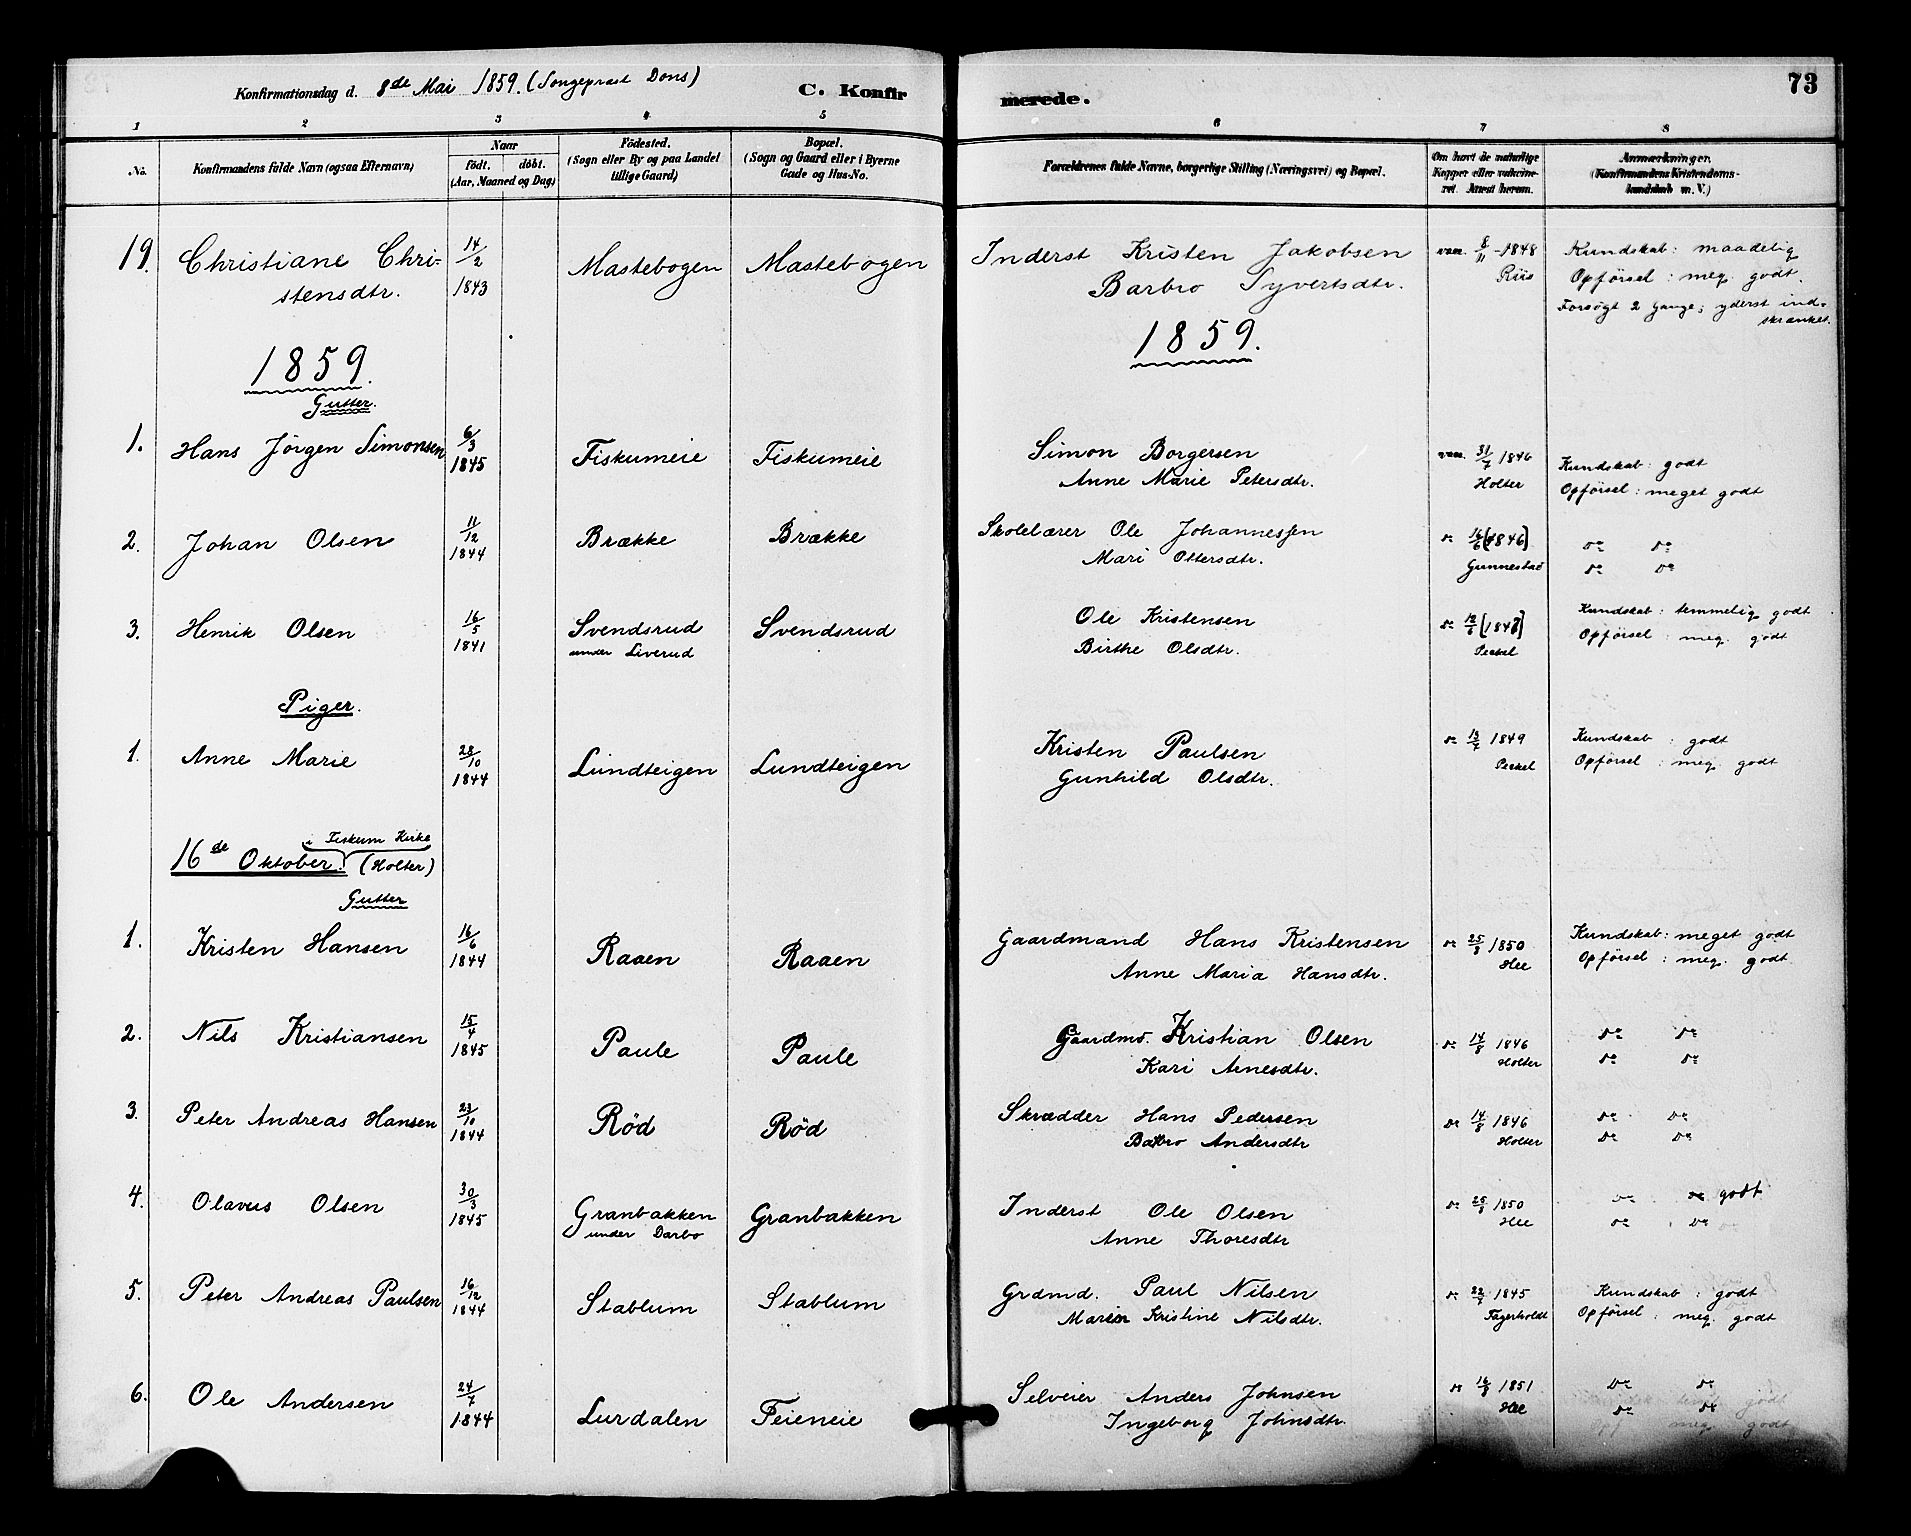 Konfirmationsdag d. 8de Mai 1859. (Songeprast Dons) C. Konfirmerede. 73
1 2 3 4 5 6 7 8
No. Konfirmandens fulde Navn (ogsaa Efternavn) Naar födt. döbt. (Aar, Maaned og Dag) Födested. (Sogn eller By og paa Landet tillige Gaard) Bopæl. (Sogn og Gaard eller i Byerne Gade og Hus-No. Forældrenes fulde Navne, borgerlige Stilling (Næringsvei) og Bopæl. Om havt de naturlige Kopper eller vaccineret. Attest herom. Anmærkninger. (Konfirmandens Kristendomskundskab m. V.)
19. Christiane Christensdtr. 14/2 1843 Mastebogen Mastebogen Inderst Kristen Jakobsen
Barbro Syvertsdtr. vac. 8/11 -1848 Riis Kundskab: maadelig
Opførsel: meg. godt.
Forsøgt 2 Gange; yderst indskrænket.
1859. 1859.
Gutter.
1. Hans Jörgen Simonsen 6/3 1845 Fiskumeie Fiskumeie Simon Borgersen
Anne Marie Petersdtr. vac. 31/7 1846 Holter Kundskab: godt
Opførsel: meget godt
2. Johan Olsen 11/12 1844 Brække Brække Skolelærer Ole Johannessen
Mari Ottersdtr. do 16/6 (1846) Gunnestad do do
do do
3. Henrik Olsen 16/5 1841 Svendsrud
under Liverud Svendsrud Ole Kristensen
Birthe Olsdtr. do Kundskab: temmelig godt
Opførsel: meg. godt
Piger.
1. Anne Marie 28/10 1844 Lundteigen Lundteigen Kristen Paulsen
Gunhild Olsdtr. do 13/7 1849 Kundskab: godt
Opførsel: meg. godt
16de Oktober. i Fiskum Kirke (Holter)
Gutter
1. Kristen Hansen 16/6 1844 Raaen Raaen Gaardmand Hans Kristensen
Anne Maria Hansdtr. do 25/8 1850 Hee Kundskab: meget godt
Opførsel: meg. godt
2. Nils Kristiansen 15/4 1845 Paule Paule Gaardmd. Kristian Olsen
Kari Arnesdtr. do 14/8 1846 Holter do do
do do
3. Peter Andreas Hansen 23/10 1844 Röd Röd Skrædder Hans Pedersen
Barbro Andersdtr do 14/8 1846 Holter do do
do do
4. Olavus Olsen 30/3 1845 Granbakken
under Darbo Granbakken Inderst Ole Olsen
Anne Thoresdtr do 25/8 1850 Hee do: godt
do: do
5. Peter Andreas Paulsen 16/12 1844 Stablum Stablum Grdmd. Paul Nilsen
Maren Kristine Nilsdtr. do 22/7 1845 Fagerholdt Kundskab: godt
Opførsel: meg. godt
6. Ole Andersen 24/7 1844 Lurdalen Feieneie Selveier Anders Johnsen
Ingeborg Johnsdtr. do 16/8 1851 Hee do do
do do